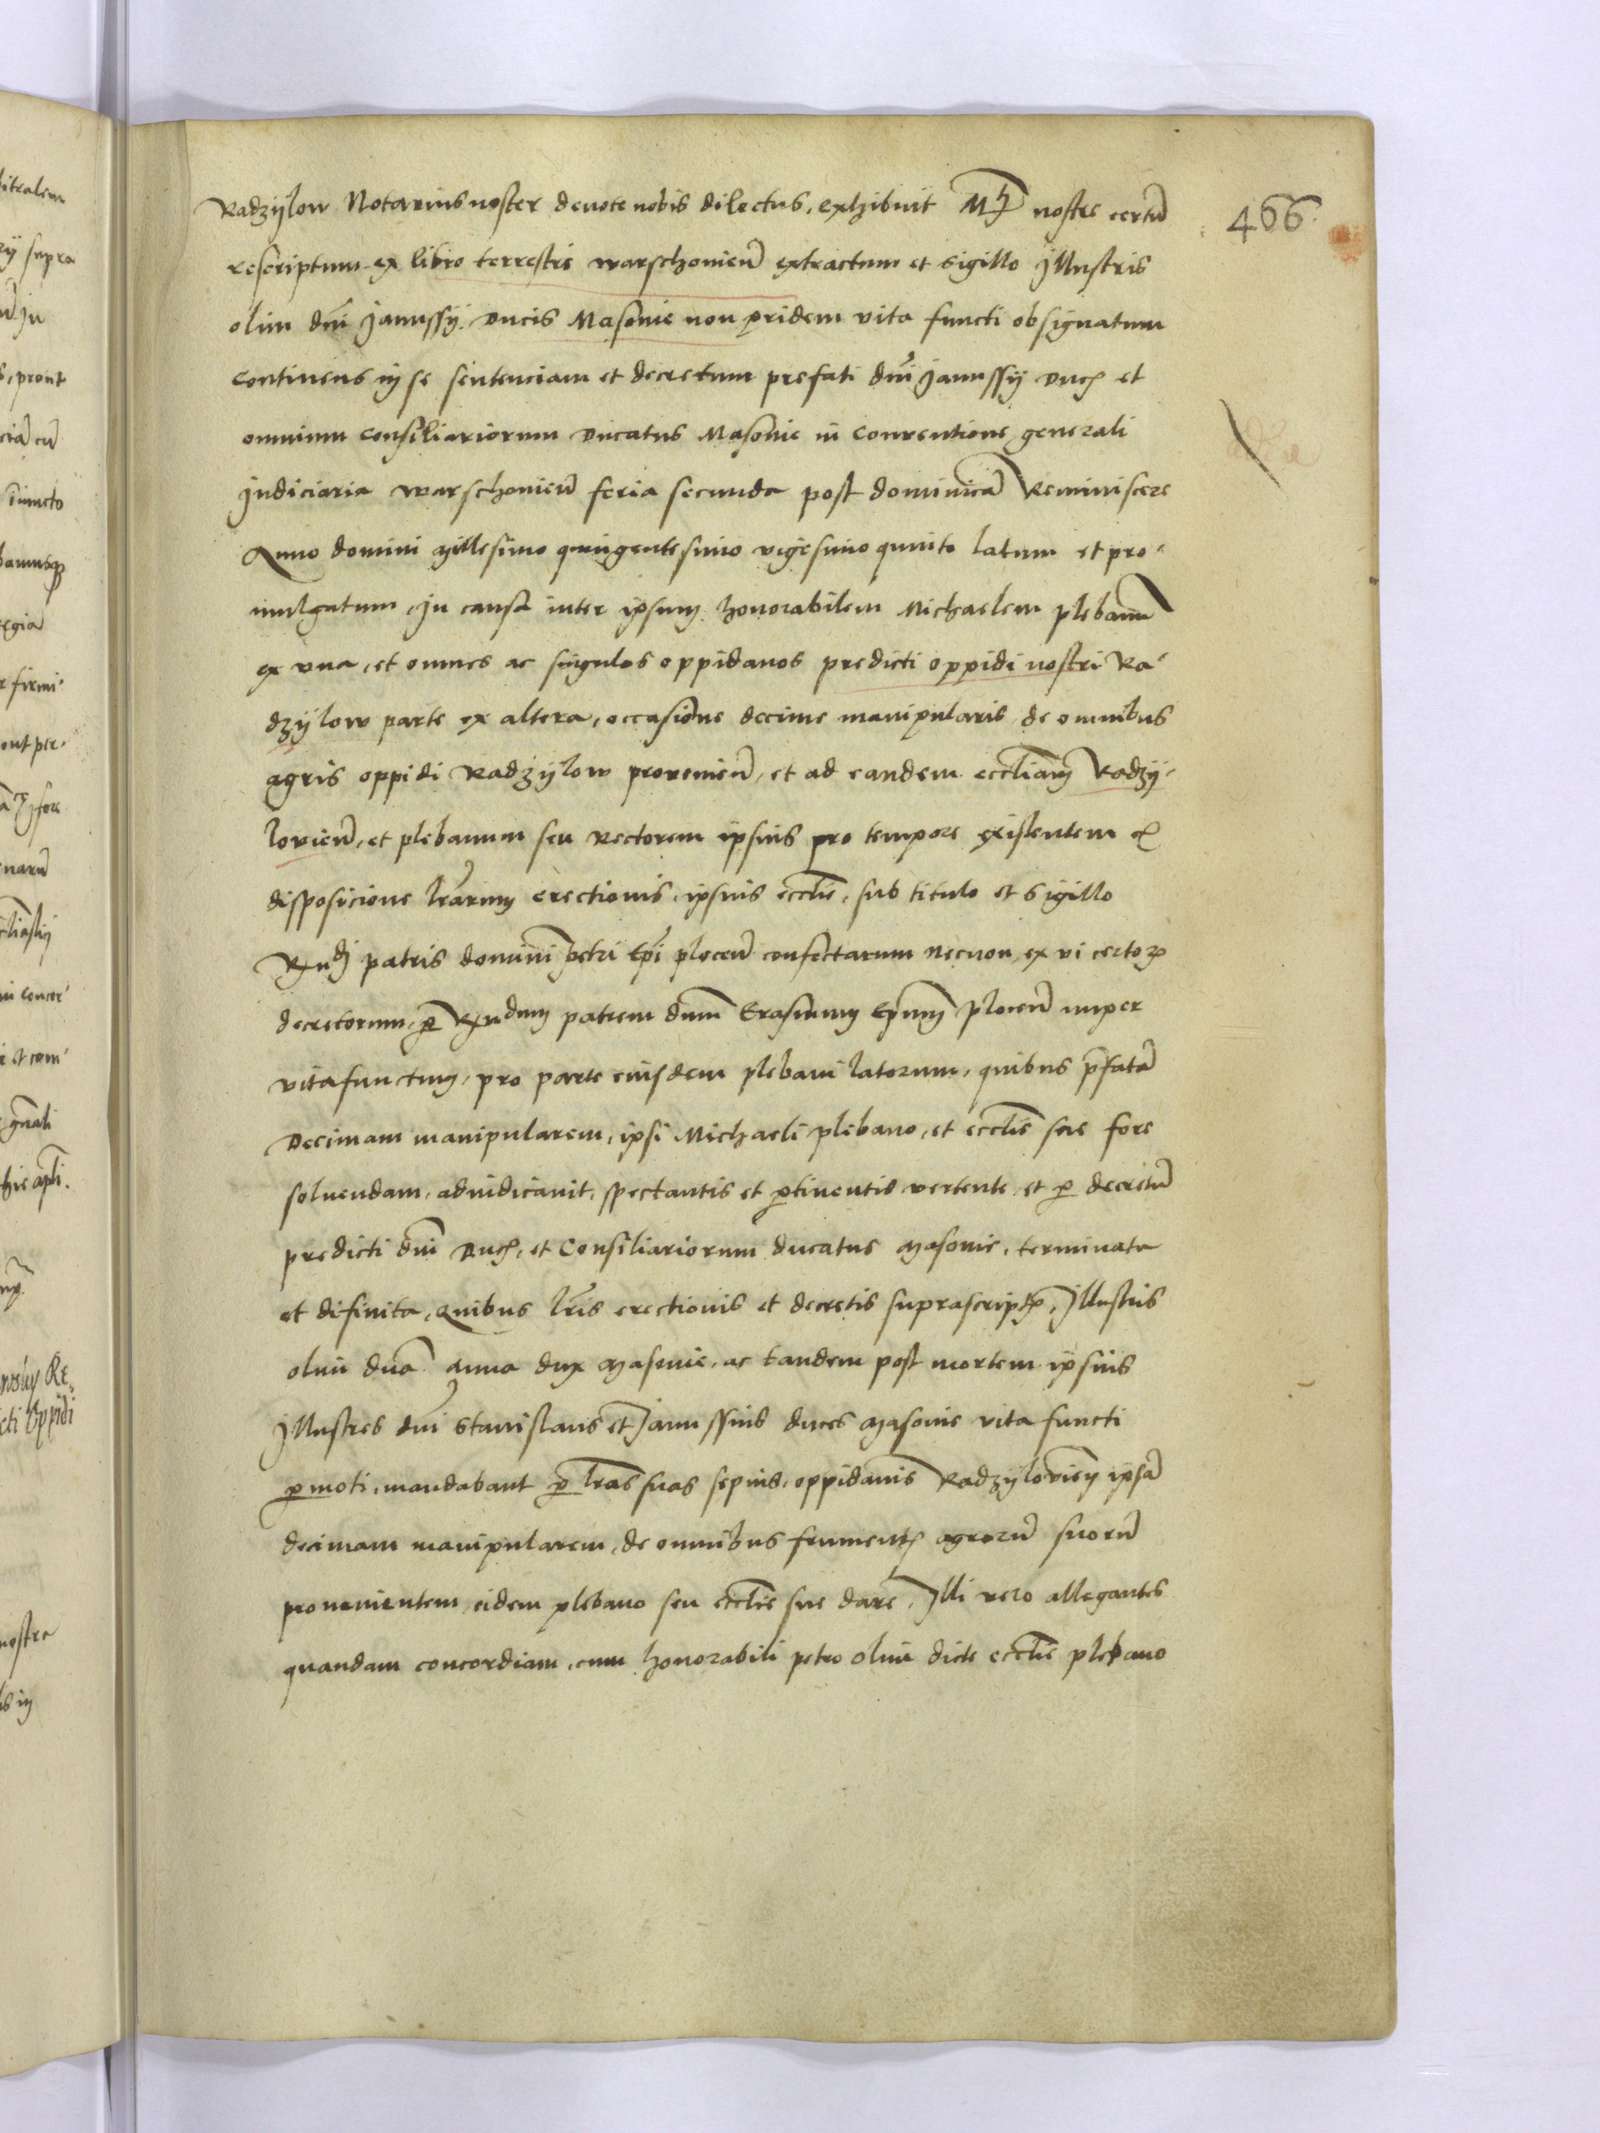 466
Radzÿlow Notarius noster devote nobis dilectus, exhibuit Mti nostre certū
rescriptum ex libro terrestri warschovienſ extractum et sigillo Jllustris
olim dni Janussÿ Ducis Masovie non pridem vita functi obsignatum
continens in se sentenciam et decretum prefati dni Janussÿ Ducis et
omnium consiliariorum Ducatus Masovie in conventione generali
Judiciaria warschovienſ feria secunda post dominicā Reminiscere
Anno domini millesimo quingentesimo vigesimo quinto latum et pro-
mulgatum, in causa inter ipsum honorabilem Michaelem plebanum
ex una, et omnes ac singulos oppidanos predicti oppidi nostri Ra-
dzÿlow parte ex altera, occasione decime manipularis de omnibus
agris oppidi Radzÿlow provenienſ, et ad eandem eccliam Radzÿ-
lovienſ, et plebanum seu Rectorem ipsius pro tempore existentem ex
disposicione lrarum erectionis ipsius ecclie, sub titulo et sigillo
Rndi patris domini petri Epi plocenſ confectarum necnon ex vi certorꝝ
decretorum, ꝑ Rndum patrem dnum Erasmum Epum plocenſ nuper
vitafunctum, pro parte eiusdem plebani latorum, quibus p̄fatā
Decimam manipularem, ipsi Michaeli plebano, et ecclie sue fore
solvendam, adiudicavit, spectantis et ꝑtinentis vertente et ꝑ decretū
predicti dni Ducis, et Consiliariorum ducatus Masovie, terminata
et difinita, Quibus lris erectionis et decretis suprascriptis, Jllustris
olim dna Anna dux Masovie, ac tandem post mortem ipsius
Jllustres dni Stanislaus et Janussius duces Masovie vita functi
ꝑmoti, mandabant ꝑ lras suas sepius, oppidanis Radzÿlovienſ ipsā
decimam manipularem, de omnibus frumentis agrorū suorū
provenientem, eidem plebano seu ecclie sue dare, Jlli vero allegantes
quandam concordiam, cum honorabili petro olim dicte ecclie plebano